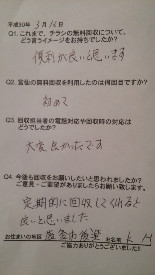 平成30年 3月16日
Q1. これまで、チラシの無料回収について、
どう言うイメージをお持ちでしたか?
便利が良いと思います
Q2. 当社の無料回収を利用したのは何回目ですか?
初めて
Q3. 回収担当者の電話対応や回収時の対応は
どうでしたか?
大変良かったです
Q4. 今後も回収をお願いしたいと思われましたか?
ご意見・ご要望がありましたらお願い致します。
定期的に回収して下さると
良いと思いました
お住まいの地区
お名前 K H
ご協力ありがとうございました!